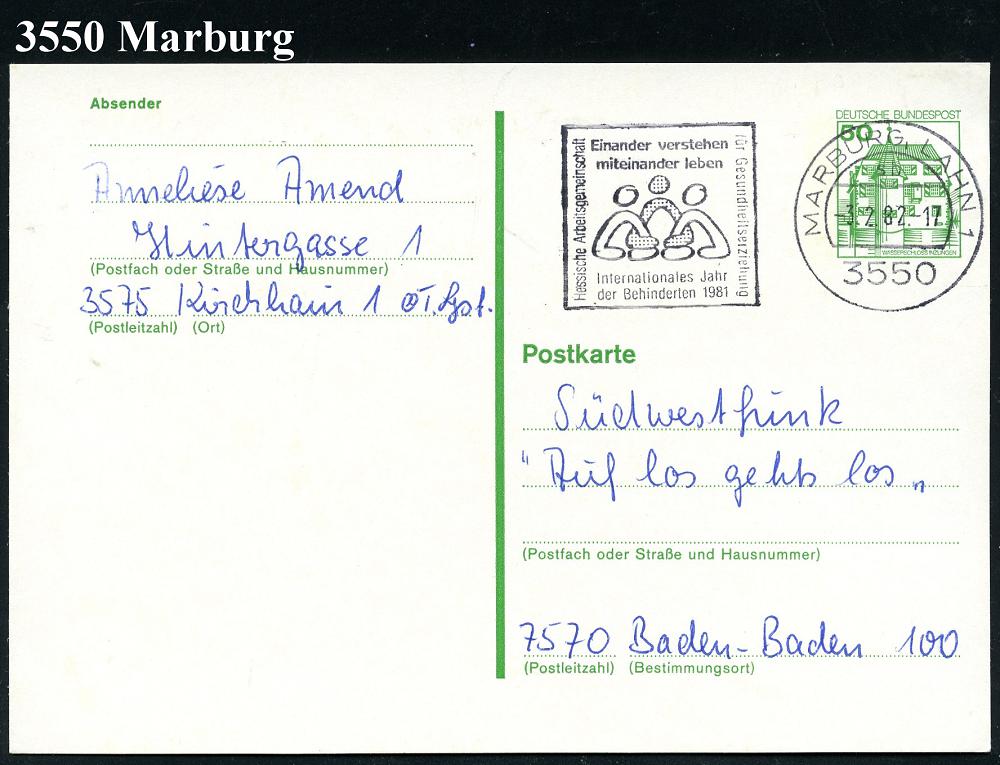 3550 Marburg
Absender
Anneliese Amend
Hintergasse 1
(Postfach oder Straße und Hausnummer)
3575 Kirchhain 1 OT.
(Postleitzahl) (Ort)
Hessische Arbeitsgemeinschaft
Einander verstehen
miteinander leben
für Gesundheitserziehung
Internationales Jahr
der Behinderten 1981
DEUTSCHE BUNDESPOST
50
WASSERSCHLOSS INZLINGEN
MARBURG, LAHN 1
-3.2.82.-17
3550
Postkarte
Südwestfunk
"Auf los gehts los"
(Postfach oder Straße und Hausnummer)
7570 Baden-Baden 100
(Postleitzahl) (Bestimmungsort)